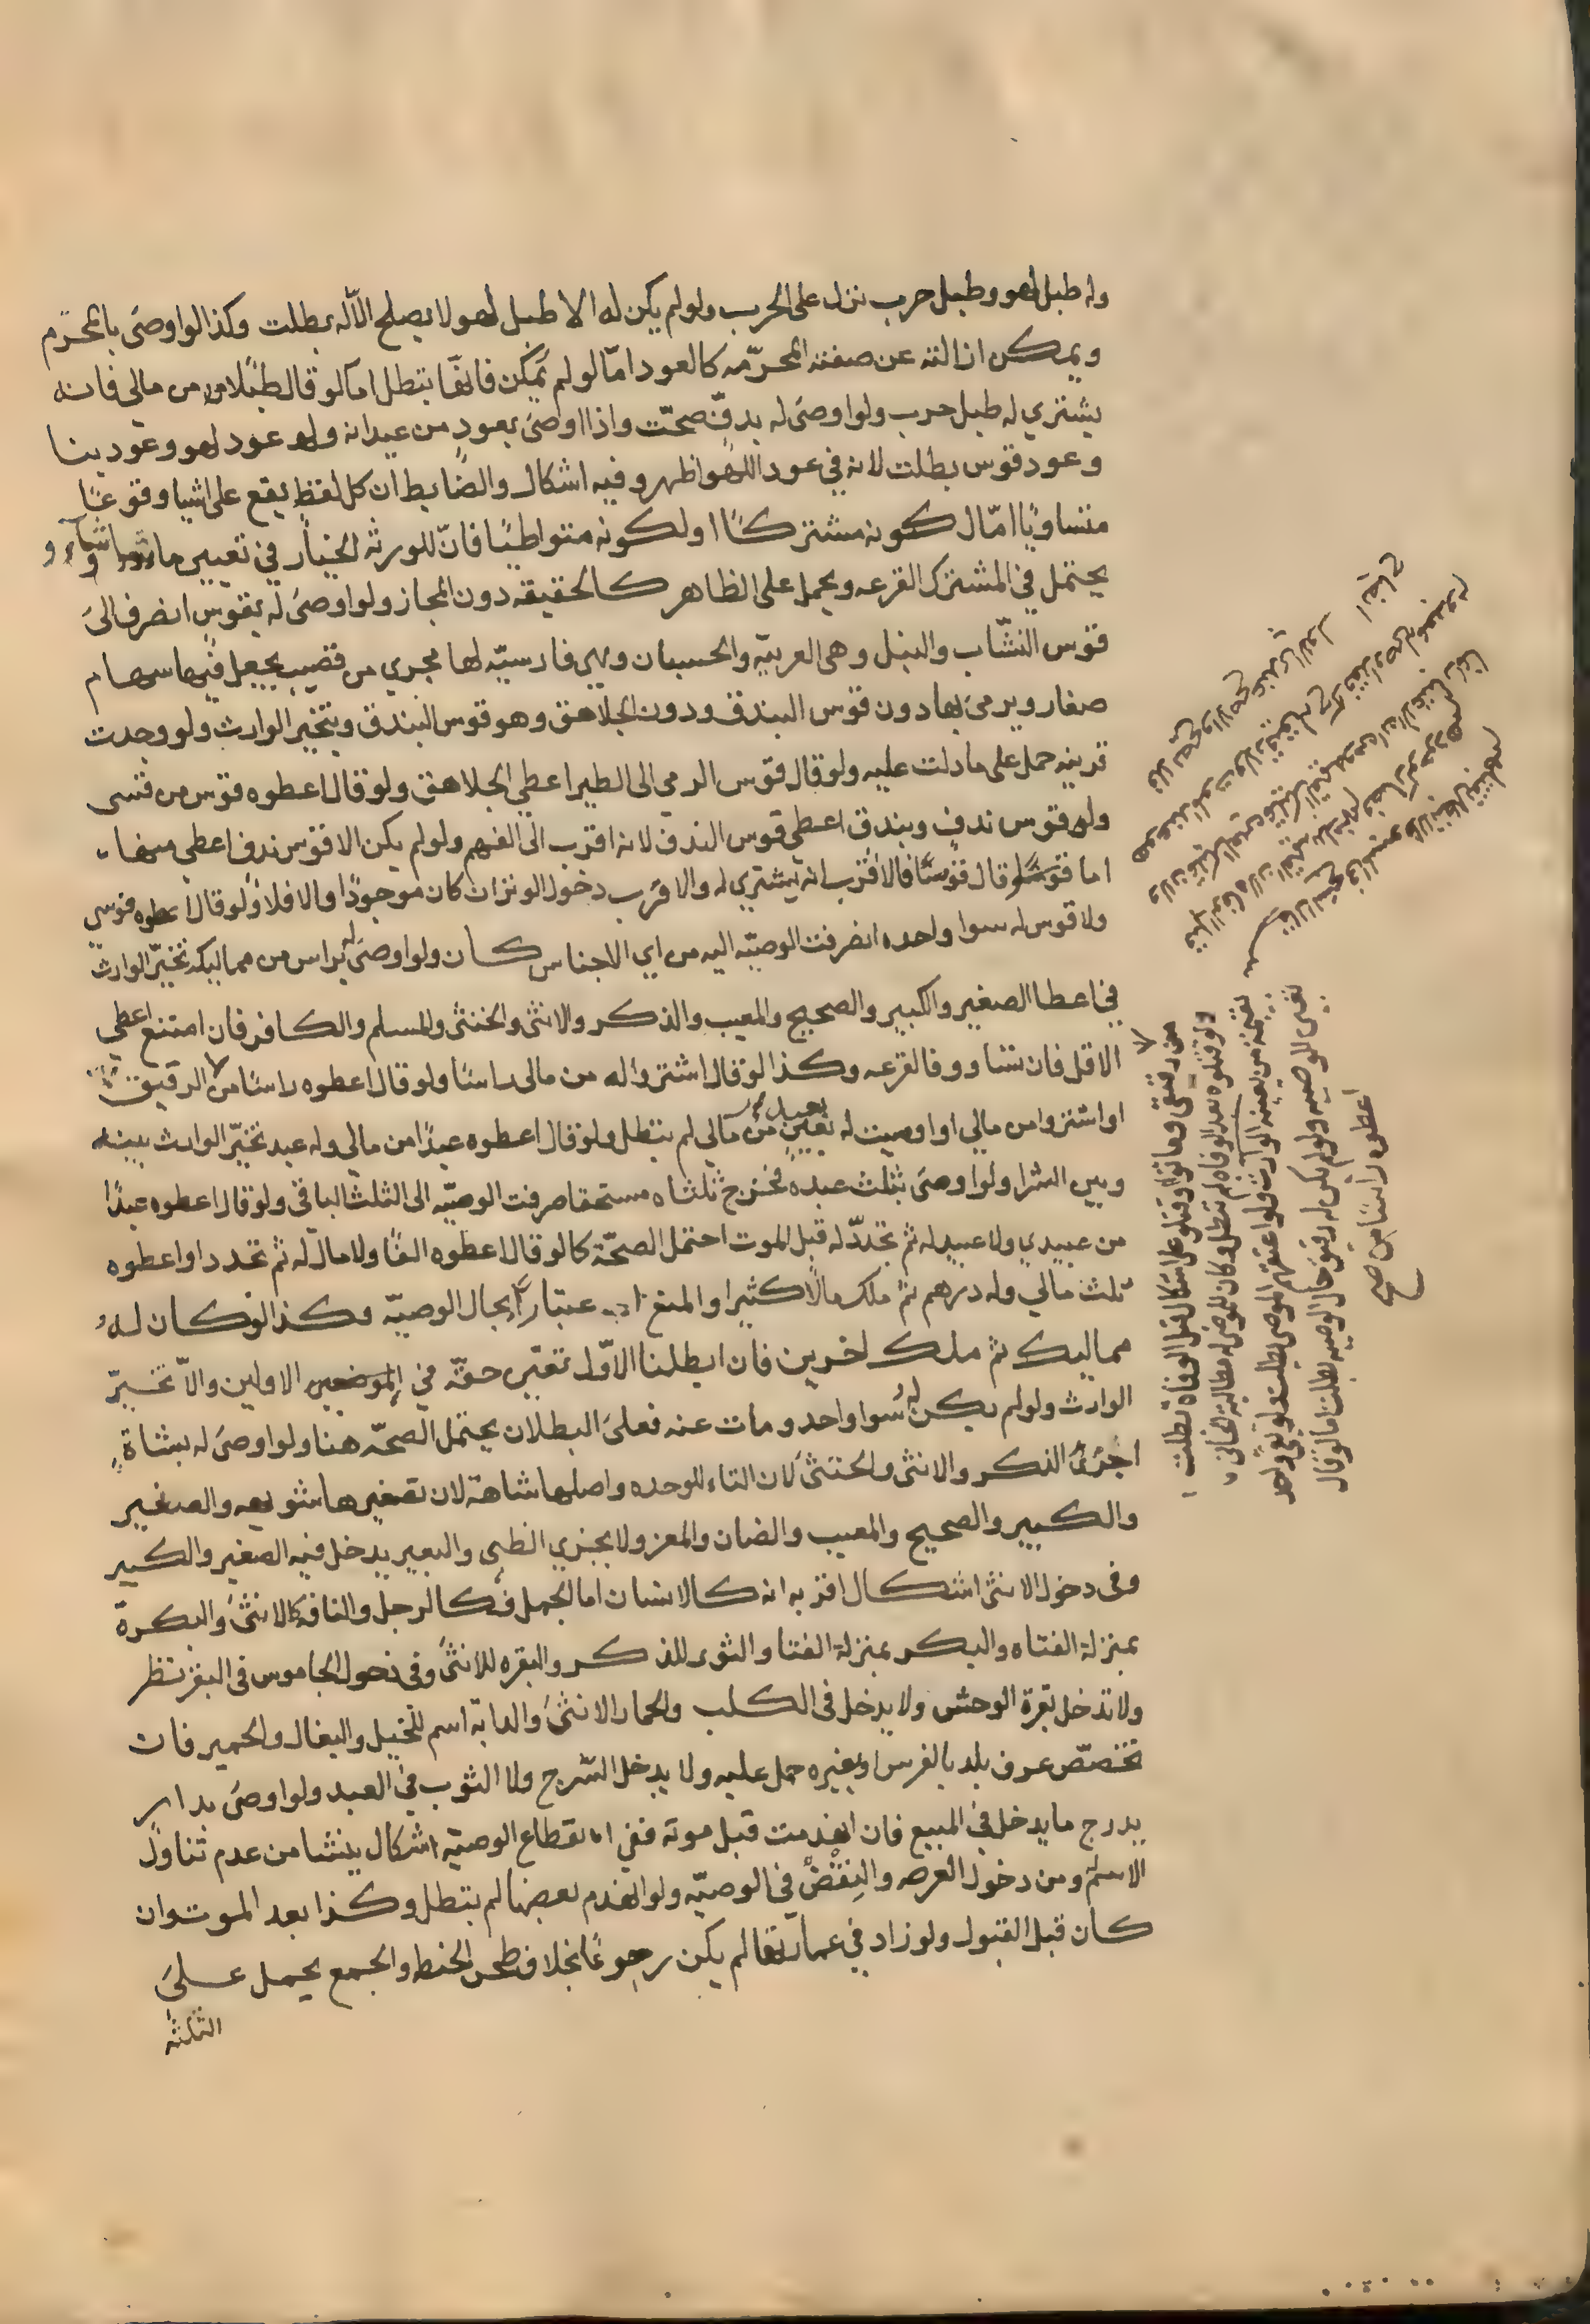 وله طبل لهو وطبل حرب نزل على الحرب ولو لم يكن له الا طبل لهو لا يصلح الا له بطلت وكذا لو اوصى بالمحرّم
ويمكن ازالته عن صفته المحرّمه كالعود امّا لو لم يمكن فانها تبطل امّا لو قال طبلا من مالي فانه
يشتري له طبل حرب ولو اوصى له بدفّ صحّت واذا اوصى بعود من عيدانه وله عود لهو وعود بنا
وعود قوس بطلت لانه في عود اللهو اظهر وفيه اشكال والضابط ان كل لفظ يقع على اشيا وقوعًا
متساويًا امّا لكونه مشتركًا او لكونه متواطيًا فانّ للورثه الخيار في تعيين ما شاء و
يحتمل في المشترك القرعه ويحمل على الظاهر كالحقيقه دون المجاز ولو اوصى له بقوس انصرف الى
قوس النشّاب والنبل وهى العربيّه والحسبان وهي فارسيّه لها مجري من قصب يجعل فيها سهام
صغار ويرمى بها دون قوس البندق ودون الجلاهق وهو قوس البندق ويتخير الوارث ولو وجدت
قرينه حمل على ما دلت عليه ولو قال قوس الرمي الى الطير اعطي الجلاهق ولو قال اعطوه قوس من قسى
وله قوس ندف وبندق اعطي قوس الندف لانه اقرب الى الفهم ولو لم يكن الا قوس ندف اعطي منها
اما لو قال قوسًا فالاقرب انه يشتري له والاقرب دخول الوتر ان كان موجودًا والا فلا ولو قال اعطوه قوسى
ولا قوس له سوا واحده انصرفت الوصيّه اليه من اي الاجناس كان ولو اوصى له براس من مماليكه تخيّر الوارث
في اعطا الصغير والكبير والصحيح والمعيب والذكر والانثى والخنثى والمسلم والكافر فان امتنع اعطي
الاقل فان تساووا فالقرعه وكذا لو قال اشتروا له من مالى راسًا ولو قال اعطوه راسًا من الرقيق
او اشتروا من مالي او اوصيت له بعبد من مالي لم تبطل ولو قال اعطوه عبدًا من مالي وله عبد تخيّر الوارث بينه
وبين الشرا ولو اوصى بثلث عبده فخرج ثلثاه مستحقا صرفت الوصيّه الى الثلث الباقى ولو قال اعطوه عبدًا
من عبيدي ولا عبيد له ثم تجدّد له قبل الموت احتمل الصحّة كما لو قال اعطوه الفًا ولا مال له ثم تجدد او اعطوه
ثلث مالي وله درهم ثم ملك مالًا كثيرا والمنع اعتبارًا بحال الوصيّه وكذا لو كان له
مماليك ثم ملك اخرين فان ابطلنا الاوّل تعيّن حقّه في الموضعين الاولين والاّ تخيّر
الوارث ولو لم يكن له سوا واحد ومات عنه فعلى البطلان يحتمل الصحّه هنا ولو اوصى له بشاة
اجزئ الذكر والانثى والخنثى لان التاء للوحده واصلها شاهة لان تصغيرها شويهه والصغير
والكبير والصحيح والمعيب والضان والمعز ولا يجزي الظبى والبعير يدخل فيه الصغير والكبير
وفى دخول الانثى اشكال اقربه انه كالانسان اما الجمل فكالرجل والناقه كالانثى والبكرة
بمنزلة الفتاه والبكر بمنزلة الفتا والثور للذكر والبقره للانثى وفى دخول الجاموس فى البقر نظر
ولا تدخل بقرة الوحش ولا يدخل فى الكلب والحمار الانثى والدابّة اسم للخيل والبغال والحمير فان
تخصّص عرف بلد بالفرس او بغيره حمل عليه ولا يدخل السّرج ولا الثوب في العبد ولو اوصى بدار
يدرج ما يدخل في المبيع فان انهدمت قبل موته ففي انقطاع الوصيّه اشكال ينشا من عدم تناول
الاسم له ومن دخول العرصه والنقض في الوصيّه ولو انهدم بعضها لم تبطل وكذا بعد الموت وان
كان قبل القبول ولو زاد في عمارتها لم يكن رجوعًا بخلاف طحن الحنطه والجمع يحمل على
الثلثة
من رقيقي وماتوا او قتلوا على اشكال قبل الوفاة بطلت
ولو قتلوا بعد الوفاه لم تبطل وكان للموصى له مطالبة الجانى
بقيمة من يعينه الوارث ولو اعتقهم الموصى بطلت ولو بقي واحد
تعيّن للوصيه ولو لم يكن له رقيق حال الوصيه بطلت اما لو قال
اعطوه راسًا من
صح